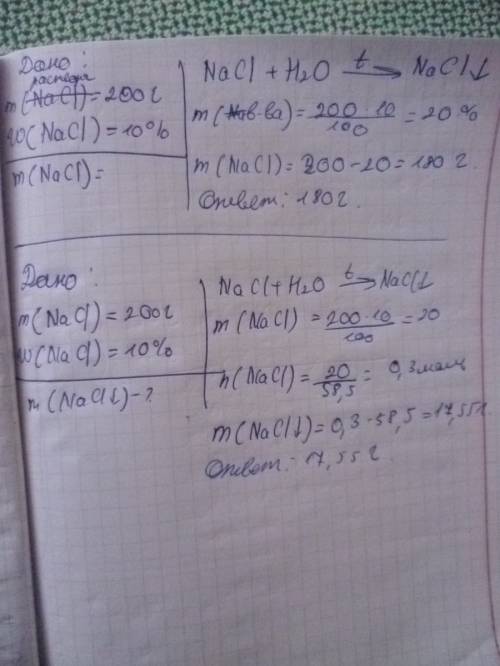 Дано:
раствора
m(NaCl) = 200г
ω(NaCl) = 10%
m(NaCl) =
NaCl + H2O t→ NaCl↓
m(в-ва) = 200·10/100 = 20%
m(NaCl) = 200-20 = 180г.
Ответ: 180г.
Дано:
m(NaCl) = 200г
ω(NaCl) = 10%
m(NaCl↓) - ?
NaCl + H2O t→ NaCl↓
m(NaCl) = 200·10/100 = 20
n(NaCl) = 20/58,5 = 0,3моль
m(NaCl↓) = 0,3·58,5 = 17,55г.
Ответ: 17,55г.